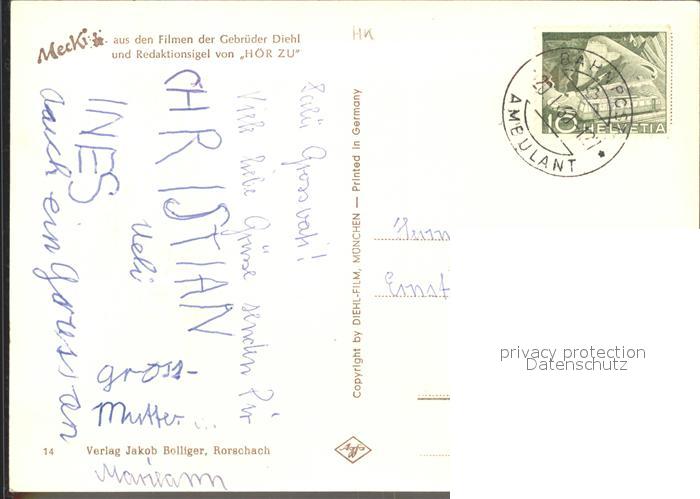 Mecki aus den Filmen der Gebrüder Diehl
und Redaktionsigel von „HÖR ZU"
HK
Salü Grossvati!
Viele liebe Grüsse senden Dir
CHRISTIAN
Ueli
INES
auch ein Gruss an
gross-
Mutter...
Mariann
14 Verlag Jakob Bolliger, Rorschach
Copyright by DIEHL-FILM, MÜNCHEN — Printed in Germany
Agfa
BAHNPOST
AMBULANT
10 HELVETIA
Herrn
Ernst
privacy protection
Datenschutz